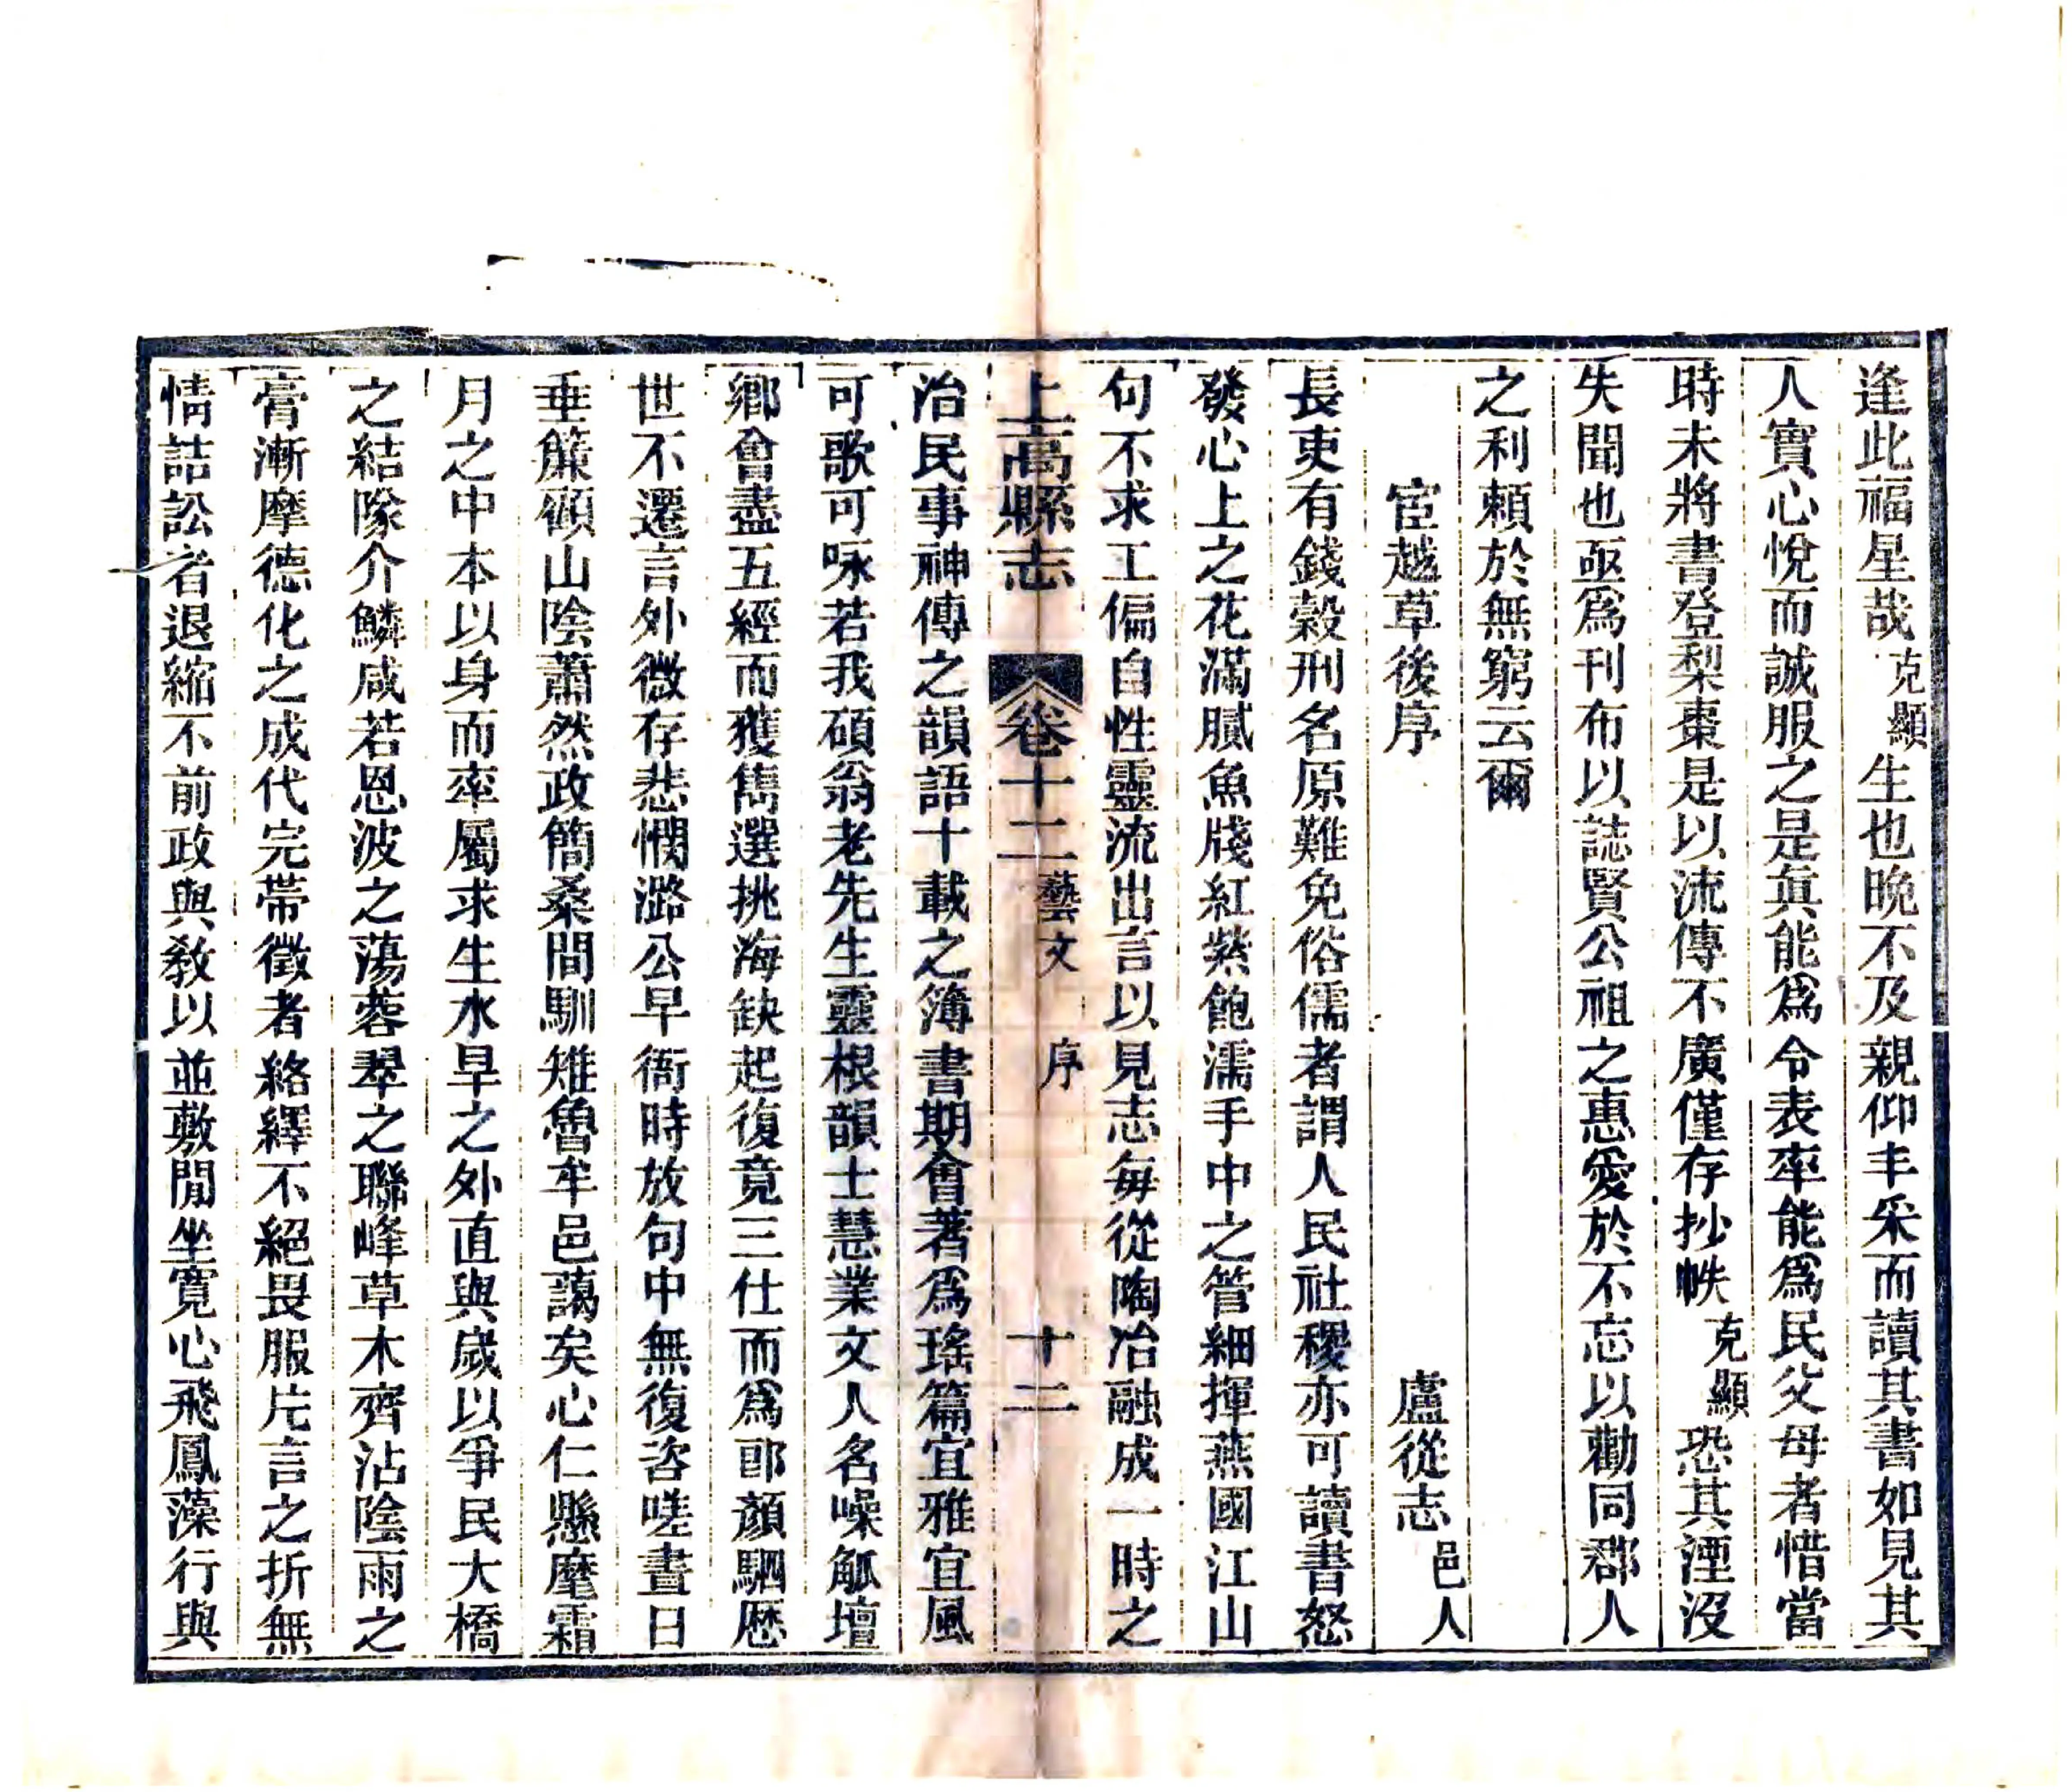 逢此福星哉克顯生也晚不及親仰丰采而讀其書如見其
人實心悅而誠服之是眞能爲令表率能爲民父母者惜當
時未將書登梨棗是以流傳不廣僅存抄帙克顯恐其湮沒
失聞也亟爲刊布以誌賢公祖之惠愛於不忘以勸同郡人
之利賴於無窮云爾
宦越草後序 盧從志邑人
長吏有錢穀刑名原難免俗儒者謂人民社稷亦可讀書怒
發心上之花滿膩魚牋紅紫飽濡手中之管細揮燕國江山
句不求工偏自性靈流出言以見志每從陶冶融成一時之
上高縣志 卷十二 藝文 序 十二
治民事神傳之韻語十載之簿書期會著爲瑤篇宜雅宜風
可歌可咏若我碩翁老先生靈根韻士慧業文人名噪觚壇
鄉會盡五經而獲雋選挑海缺起復竟三仕而爲郎顏駟歷
世不還言外微存悲憫潞公早衙時放句中無復咨嗟晝日
垂簾領山陰蕭然政簡桑間馴雉魯牟邑藹矣心仁懸麾霜
月之中本以身而率屬求生水旱之外直與歲以爭民大橋
之結隊介鱗咸若恩波之蕩蓉翠之聯峰草木齊沾陰雨之
膏漸摩德化之成代完帶徵者絡繹不絕畏服片言之折無
情詰訟者退縮不前政與敎以並敷閒坐寬心飛鳳藻行與